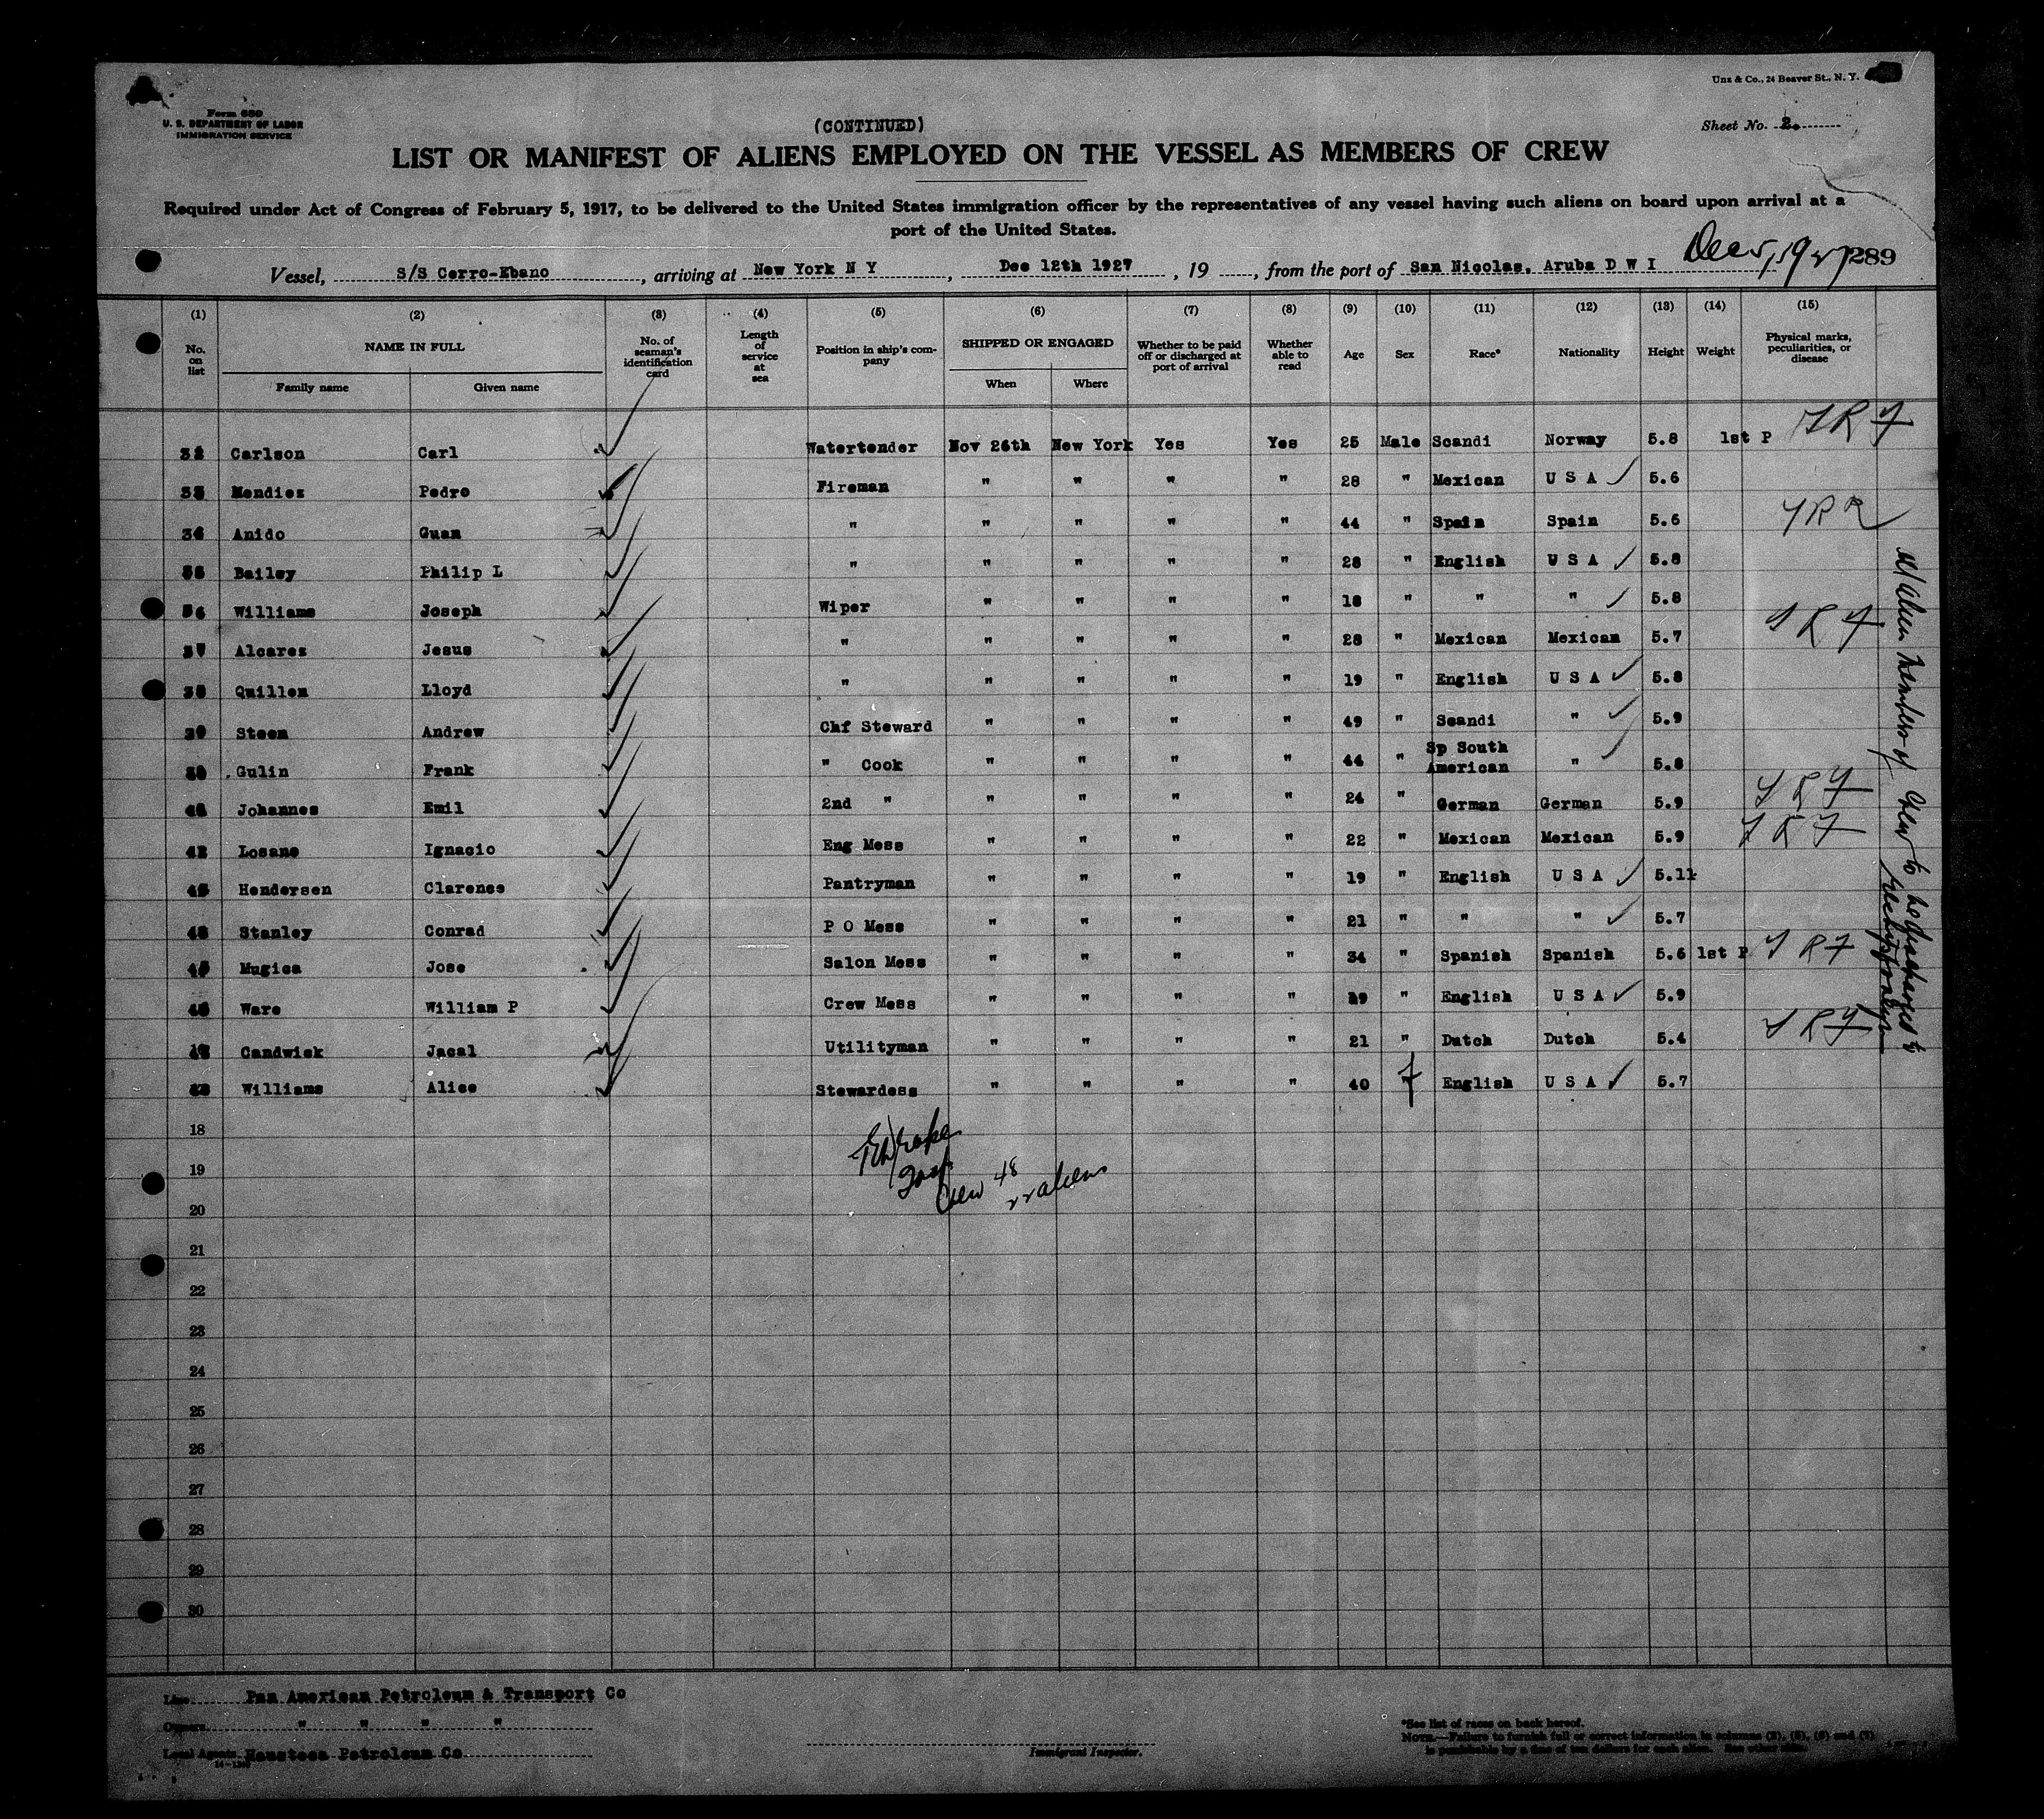 Uns & Co., 24 Beaver St., N. Y.
Form 680
U. S. DEPARTMENT OF LABOR
IMMIGRATION SERVICE
(CONTINUED)
Sheet No. 2.
LIST OR MANIFEST OF ALIENS EMPLOYED ON THE VESSEL AS MEMBERS OF CREW
Required under Act of Congress of February 5, 1917, to be delivered to the United States immigration officer by the representatives of any vessel having such aliens on board upon arrival at a
port of the United States.
Vessel, S/S Cerro-Ebano, arriving at New York N Y, Dec 12th 1927, 19 , from the port of San Nicolas, Aruba D W I 289
(1) (2) (3) (4) (5) (6) (7) (8) (9) (10) (11) (12) (13) (14) (15)
No. on list NAME IN FULL Family name Given name No. of seaman's identification card Length of service at sea Position in ship's company SHIPPED OR ENGAGED When Where Whether to be paid off or discharged at port of arrival Whether able to read Age Sex Race* Nationality Height Weight Physical marks, peculiarities, or disease
Carlson Carl Watertender Nov 26th New York Yes Yes 25 Male Scandi Norway 5.8 1st P
Mendiez Pedro Fireman " " " " 28 " Mexican U S A 5.6
34 Anido Guan " " " " " 44 " Spain Spain 5.6
Bailey Philip L " " " " " 28 " English U S A 5.8
Williams Joseph Wiper " " " " 18 " " " 5.8
37 Alcarez Jesus " " " " " 28 " Mexican Mexican 5.7
Quillen Lloyd " " " " " 19 " English U S A 5.8
Steen Andrew Chf Steward " " " " 49 " Scandi " 5.9
Gulin Frank " Cook " " " " 44 " Sp South American " 5.8
Johannes Emil 2nd " " " " " 24 " German German 5.9
42 Losano Ignacio Eng Mess " " " " 22 " Mexican Mexican 5.9
Hendersen Clarence Pantryman " " " " 19 " English U S A 5.11
Stanley Conrad P O Mess " " " " 21 " " " 5.7
Mugica Jose Salon Mess " " " " 34 " Spanish Spanish 5.6 1st P
Ware William P Crew Mess " " " " " English U S A 5.9
Candwick Jacal Utilityman " " " " 21 " Dutch Dutch 5.4
Williams Alice Stewardess " " " " 40 F English U S A 5.7
18
19
Crew 48
aliens
20
21
22
23
24
25
26
27
28
29
30
All alien members of crew to be discharged
Line Pan American Petroleum & Transport Co
Owners " " " "
Local Agents Huasteca Petroleum Co
14—1240
Immigrant Inspector.
*See list of races on back hereof.
NOTE.—Failure to furnish full or correct information in columns (2), (5), (6) and (7)
is punishable by a fine of ten dollars for each alien. See other side.